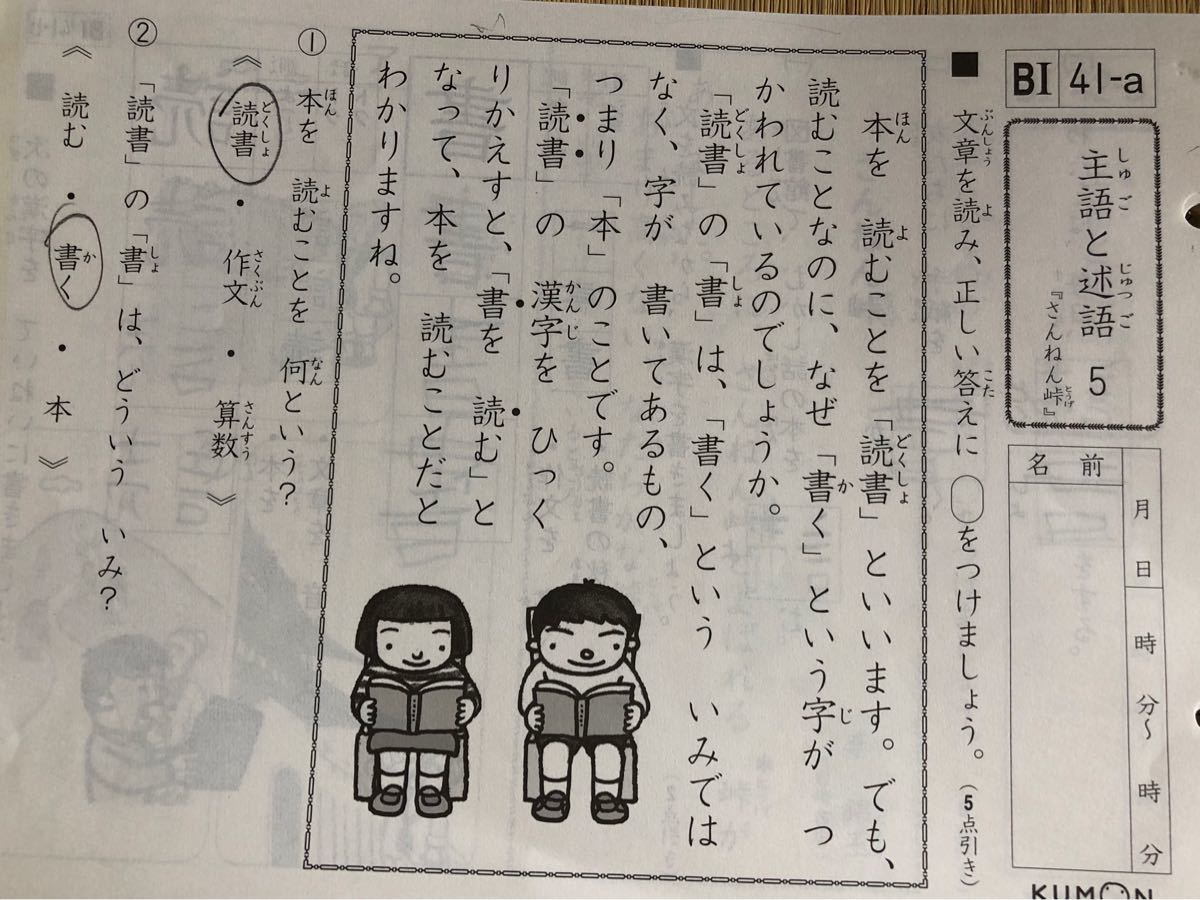 BI 41-a
主語と述語 5
『さんねん峠』
月 日 時 分〜 時 分
名前
KUMON
■ 文章を読み、正しい答えに○をつけましょう。(5点引き)
本を 読むことを 「読書」といいます。でも、
読むことなのに、なぜ「書く」という字が つ
かわれているのでしょうか。
「読書」の「書」は、「書く」という いみでは
なく、字が 書いてあるもの、
つまり「本」のことです。
「読書」の 漢字を ひっく
りかえすと、「書を 読む」と
なって、本を 読むことだと
わかりますね。
① 本を 読むことを 何という?
《 読書 ・ 作文 ・ 算数 》
② 「読書」の「書」は、どういう いみ?
《 読む ・ 書く ・ 本 》